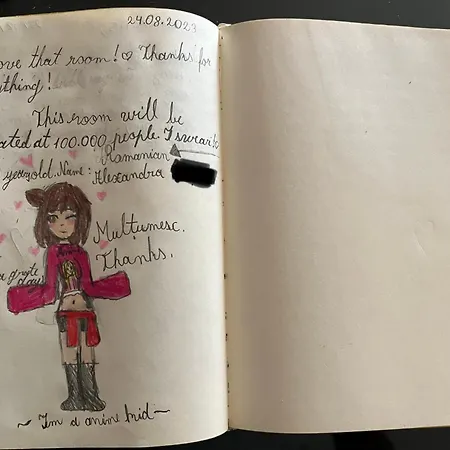 24.08.2023
ove that room! Thanks for
thing!
This room will be
ated at 100.000 people I swear
Romanian
yearsold. Name: Alexandra
Multumesc.
Thanks.
~ Im a anime kid ~